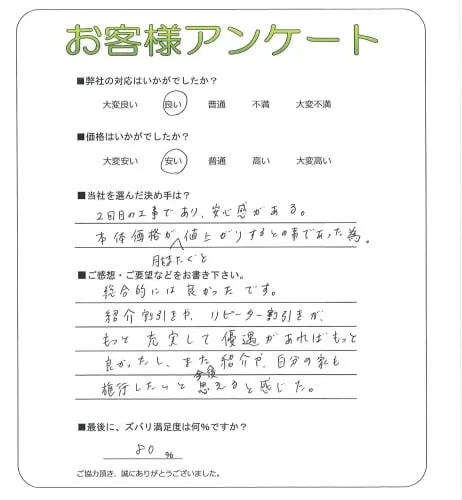 お客様アンケート
■弊社の対応はいかがでしたか?
大変良い 良い 普通 不満 大変不満
■価格はいかがでしたか?
大変安い 安い 普通 高い 大変高い
■当社を選んだ決め手は?
2回目の工事であり、安心感がある。
本体価格が値上がりするとの事であった為。
月をまたぐと
■ご感想・ご要望などをお書き下さい。
総合的には良かったです。
紹介割引きや、リピーター割引きが、
もっと充実して優遇があればもっと
良かったし、また紹介や、自分の家も
今後
施行したいと思えると感じた。
■最後に、ズバリ満足度は何%ですか?
80 %
ご協力頂き、誠にありがとうございました。